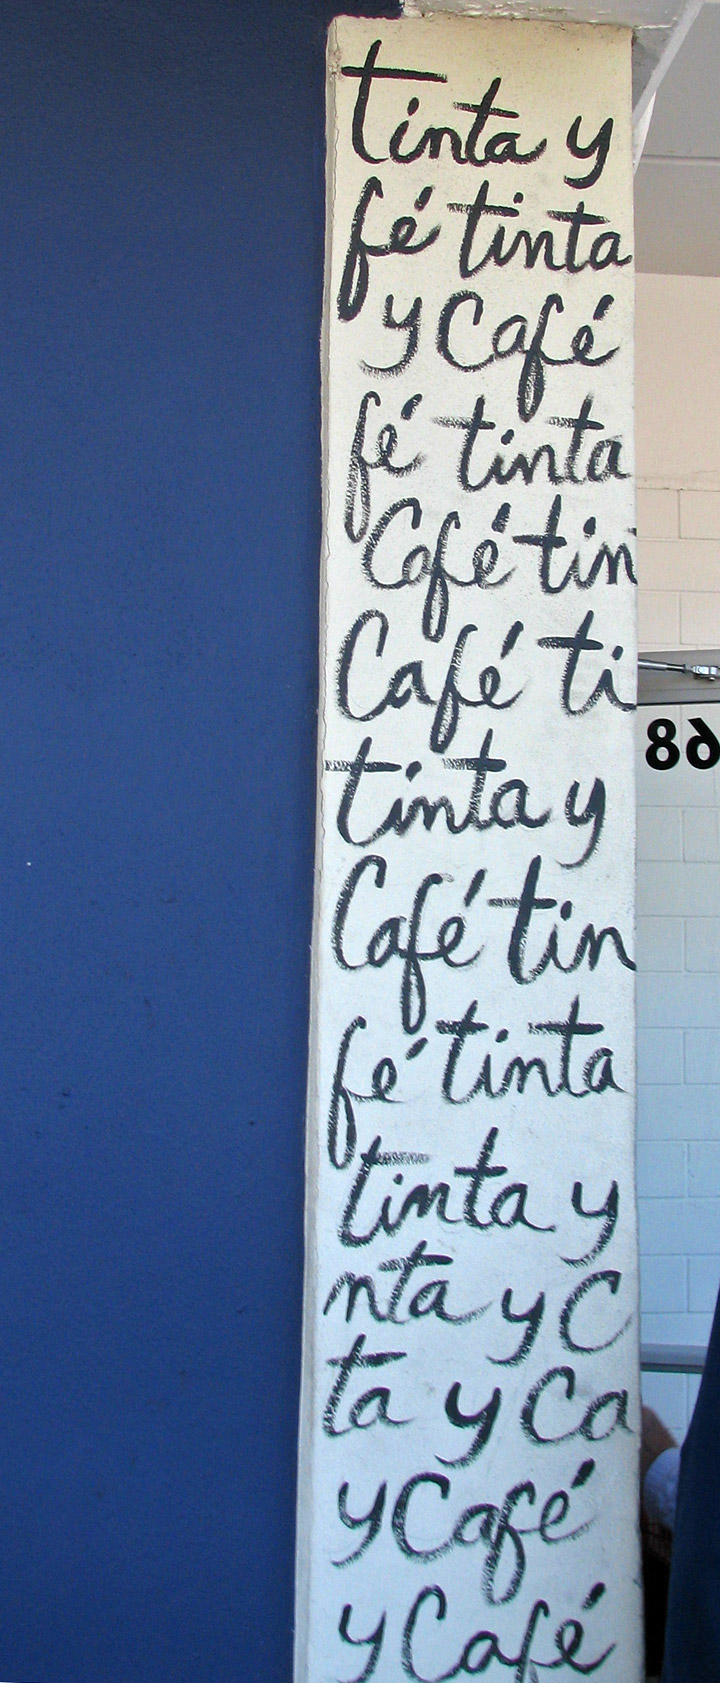 tinta y
fé tinta
y Café
fé tinta
Café tin
Café ti
tinta y
Café tin
fé tinta
tinta y
nta y C
ta y Ca
y Café
y Café